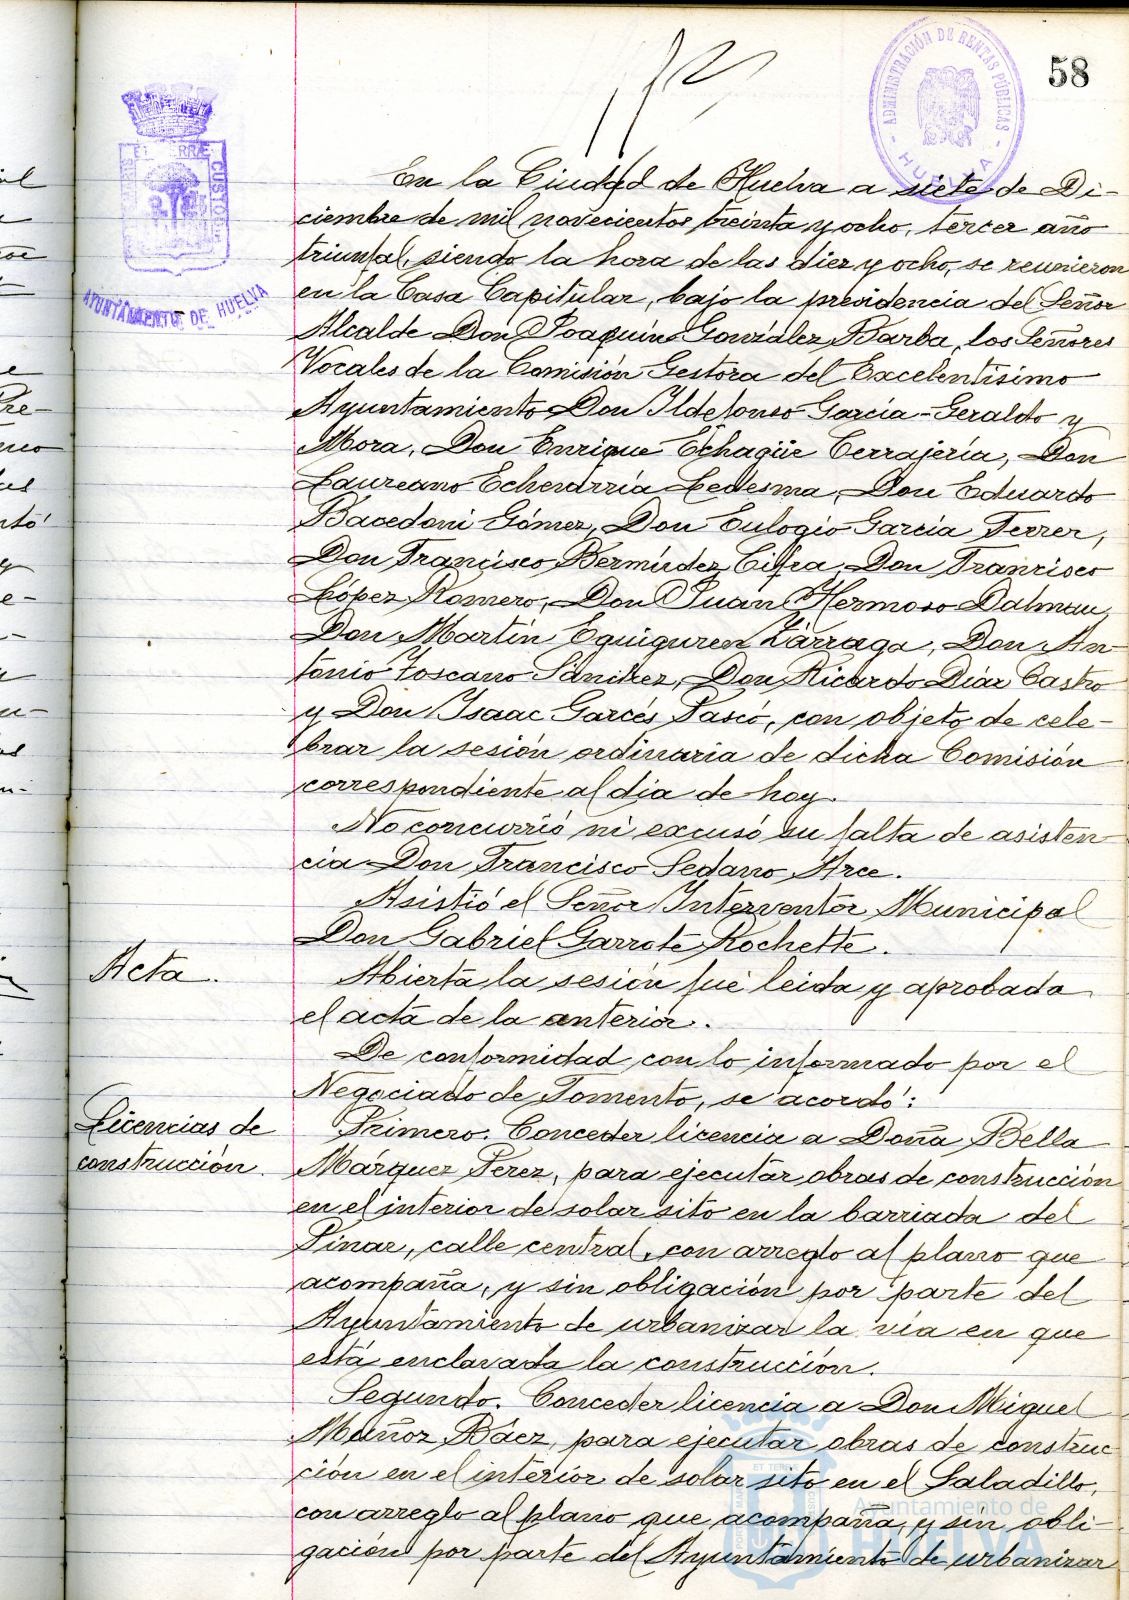 58
ADMINISTRACIÓN DE RENTAS PÚBLICAS
- HUELVA -
AYUNTAMIENTO DE HUELVA
En la Ciudad de Huelva a siete de Di-
ciembre de mil novecientos treinta y ocho, tercer año
triunfal, siendo la hora de las diez y ocho, se reunieron
en la Casa Capitular, bajo la presidencia del Señor
Alcalde Don Joaquín González Barba, los Señores
Vocales de la Comisión Gestora del Excelentísimo
Ayuntamiento Don Ildefonso García-Geraldo y
Mora, Don Enrique Echagüe Cerrajería, Don
Laureano Echevarría Ledesma, Don Eduardo
Bacedoni Gómez, Don Eulogio García Ferrer,
Don Francisco Bermúdez Cifra, Don Francisco
López Romero, Don Juan Hermoso Dalmau,
Don Martín Eguiguren Lárraga, Don An-
tonio Toscano Sánchez, Don Ricardo Díaz Castro
y Don Isaac Garcés Pascó, con objeto de cele-
brar la sesión ordinaria de dicha Comisión
correspondiente al día de hoy.
No concurrió ni excusó su falta de asisten-
cia Don Francisco Sedano Arce.
Asistió el Señor Interventor Municipal
Don Gabriel Garrote Rochette.
Acta.
Abierta la sesión fué leida y aprobada
el acta de la anterior.
De conformidad con lo informado por el
Negociado de Fomento, se acordó:
Licencias de
construcción.
Primero. Conceder licencia a Doña Bella
Márquez Perez, para ejecutar obras de construcción
en el interior de solar sito en la barriada del
Pinar, calle central, con arreglo al plano que
acompaña, y sin obligación por parte del
Ayuntamiento de urbanizar la vía en que
está enclavada la construcción.
Segundo. Conceder licencia a Don Miguel
Muñoz Báez, para ejecutar obras de construc-
ción en el interior de solar sito en el Saladillo,
con arreglo al plano que acompaña, y sin obli-
gación por parte del Ayuntamiento de urbanizar
Ayuntamiento de
HUELVA